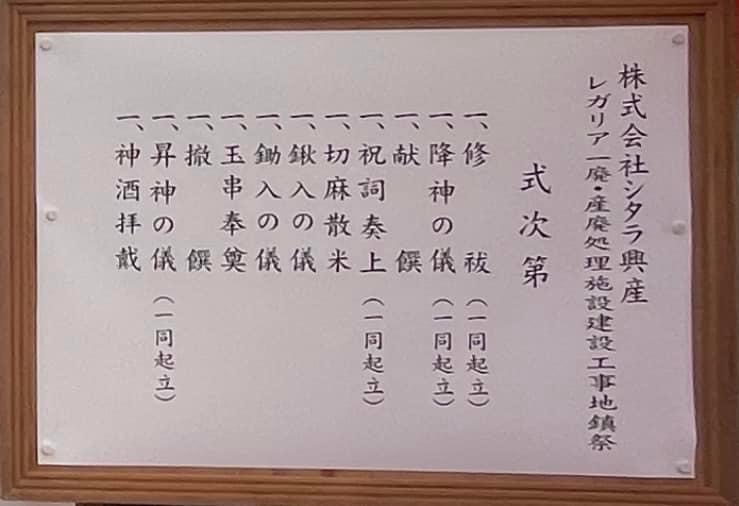 株式会社シタラ興産
レガリア一廃・産廃処理施設建設工事地鎮祭
式次第
一、修祓（一同起立）
一、降神の儀（一同起立）
一、献饌
一、祝詞奏上（一同起立）
一、切麻散米
一、鍬入の儀
一、鋤入の儀
一、玉串奉奠
一、撤饌
一、昇神の儀（一同起立）
一、神酒拝戴